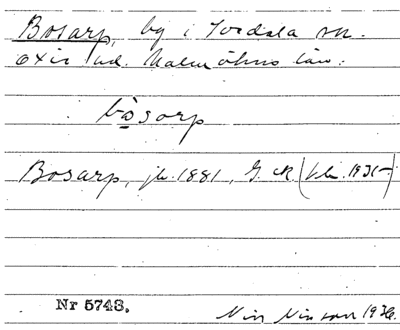 Bosarp, by i Tordala sn.
oxie hd. Malmöhus län.
bosarp
Bosarp, jb. 1881, G. K. 1931
Nr 5743.
Nils Nilsson 1936.